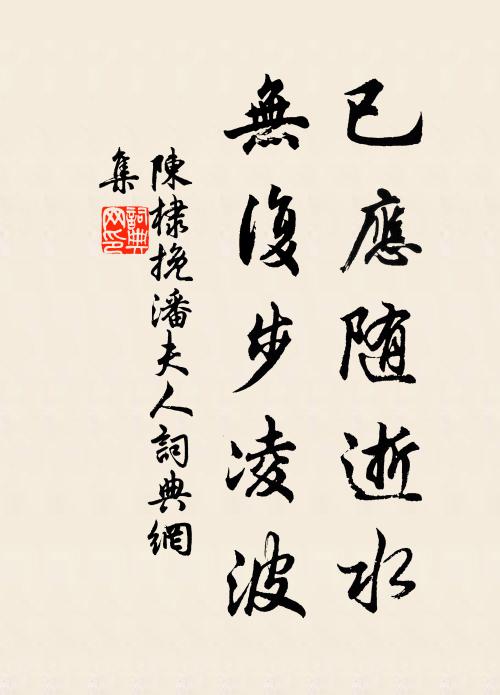 已應随逝水
無復步凌波
陳棣挽潘夫人詞典網
集
詞典
网印